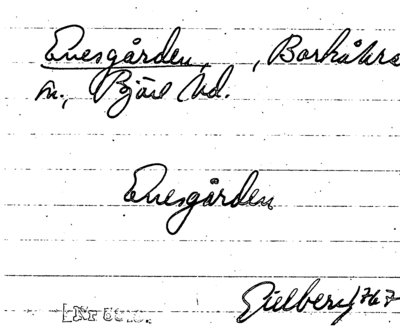 Enesgården, , Barkåkra
sn., Bjäre hd.
Enesgården
Gillberg 1767